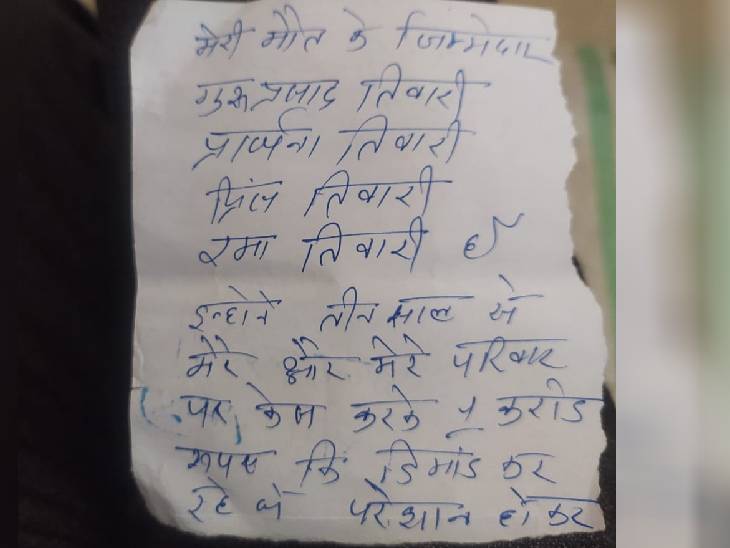 मेरी मौत के जिम्मेदार
गुरू प्रसाद तिवारी
प्रार्थना तिवारी
प्रिंस तिवारी
रमा तिवारी है
इन्होने तीन साल से
मेरे और मेरे परिवार
पर केस करके 1 करोड
रूपय कि डिमांड कर
रहे थे परेशान होकर